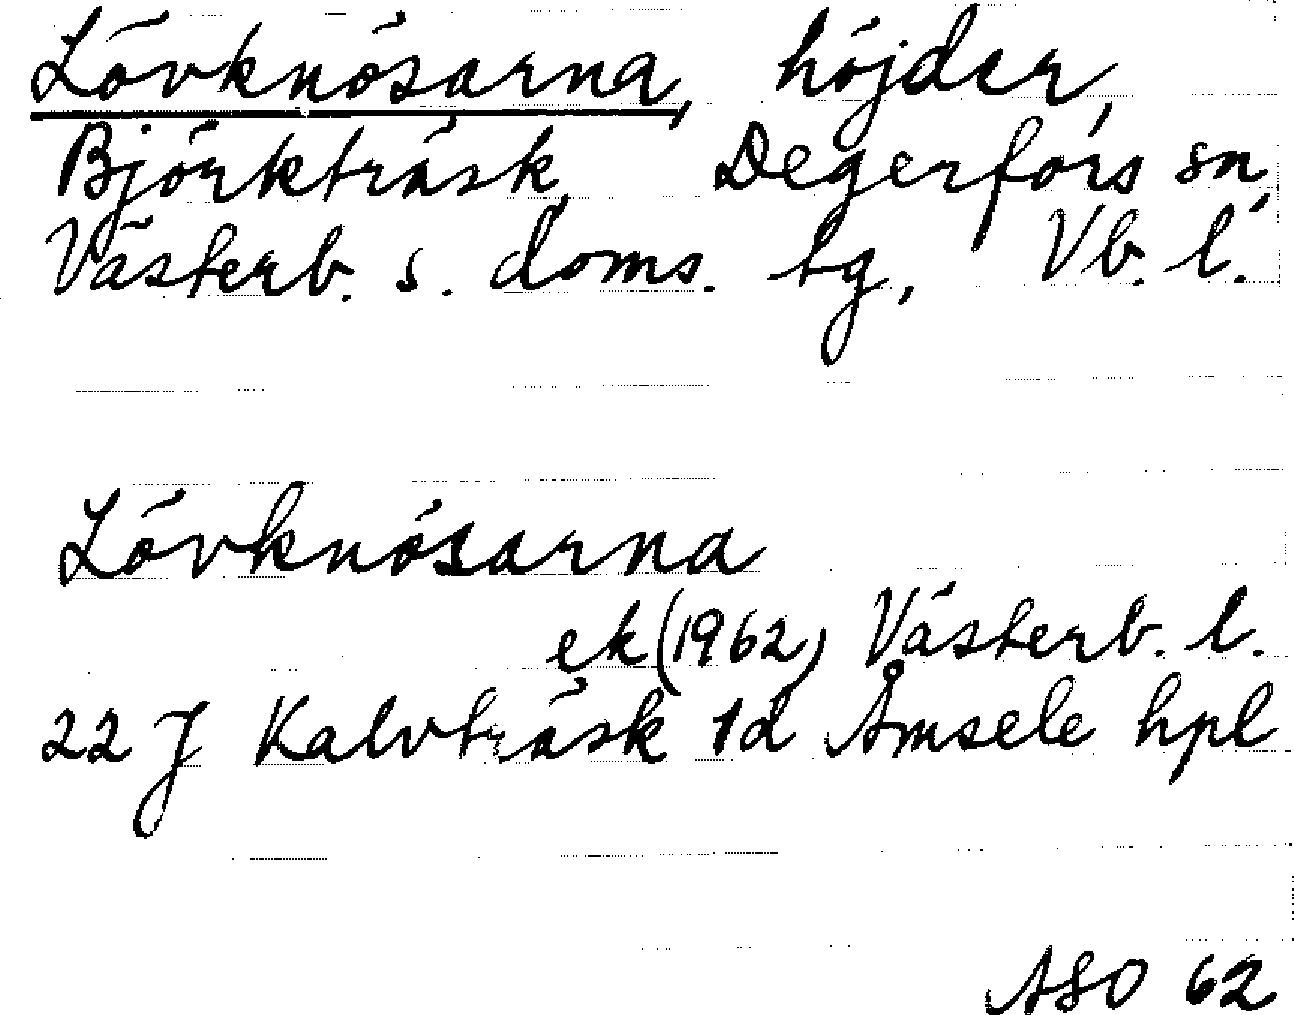 Lövknösarna, höjder,
Björkträsk, Degerfors sn,
Västerb. s. doms. tg, Vb. l.
Lövknösarna
ek (1962) Västerb. l.
22 J Kalvträsk 1d Åmsele hpl
ASO 62